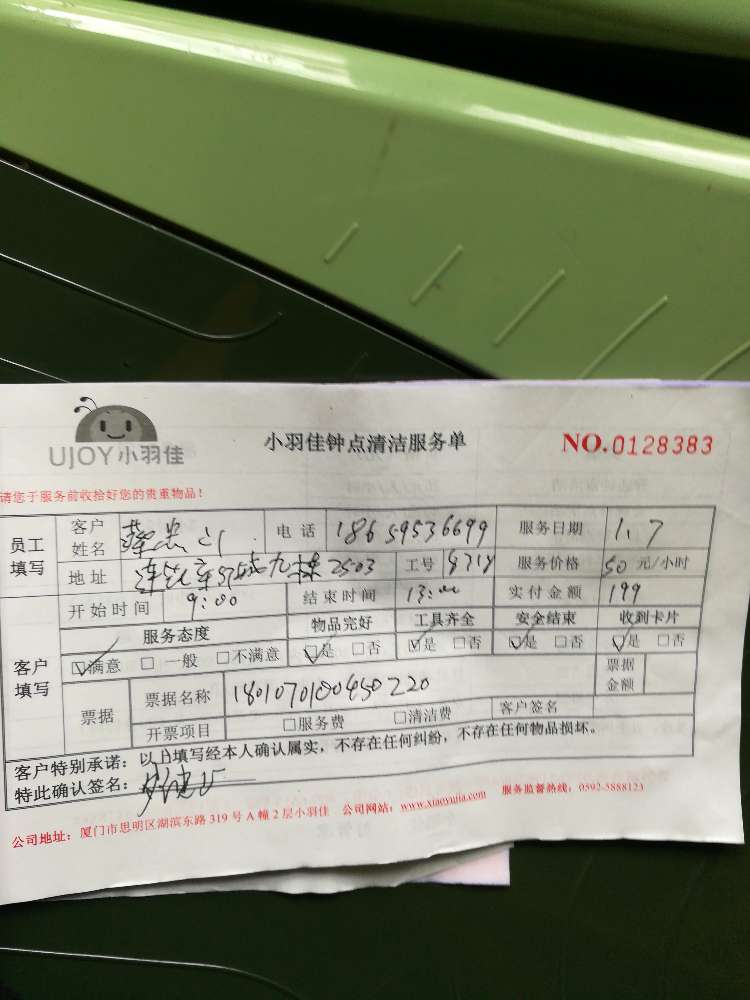 UJOY小羽佳
小羽佳钟点清洁服务单
NO.0128383
请您于服务前收拾好您的贵重物品！
员工填写 客户姓名 电话 18659536699 服务日期 1.7
地址 九栋2503 工号 服务价格 50元/小时
客户填写 开始时间 9:00 结束时间 13:00 实付金额 199
服务态度 物品完好 工具齐全 安全结束 收到卡片
☑满意 □一般 □不满意 ☑是 □否 ☑是 □否 ☑是 □否 ☑是 □否
票据 票据名称 1801070100450220 票据金额
开票项目 □服务费 □清洁费 客户签名
客户特别承诺：以上填写经本人确认属实，不存在任何纠纷，不存在任何物品损坏。
特此确认签名：
公司地址：厦门市思明区湖滨东路319号A幢2层小羽佳 公司网站：www.xiaoyujia.com 服务监督热线：0592-5888123